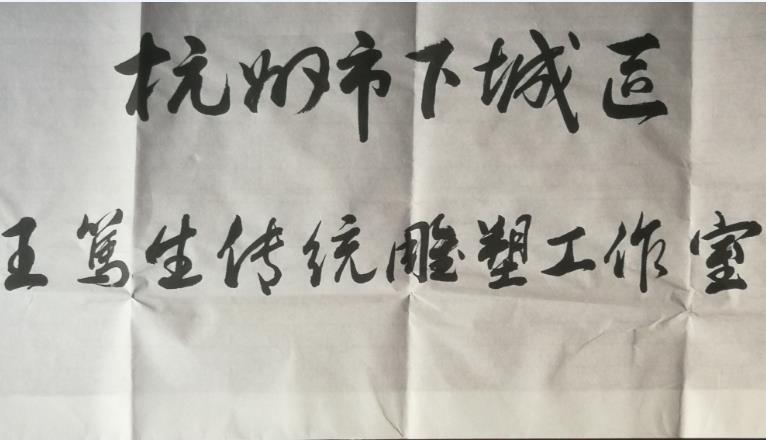 杭州市下城区
王笃生传统雕塑工作室